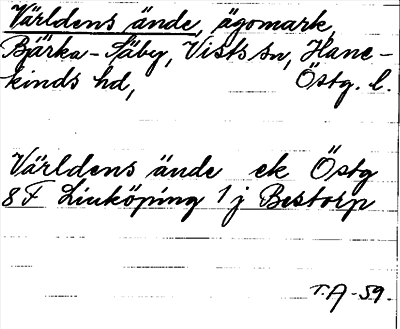 Världens ände, ägomark,
Bjärka-Säby, Vists sn, Hane-
kinds hd, Östg. l.
Världens ände ek Östg
8F Linköping 1 j Bestorp
T.A-59.